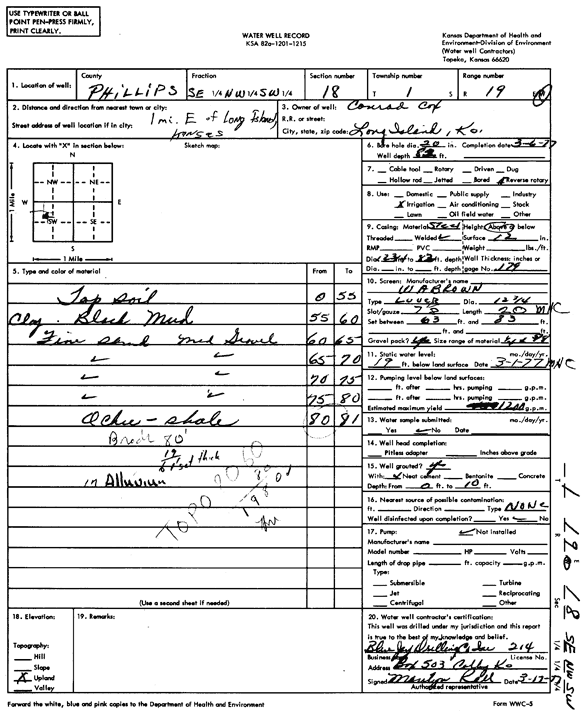 USE TYPEWRITER OR BALL
POINT PEN-PRESS FIRMLY,
PRINT CLEARLY.
WATER WELL RECORD
KSA 82a-1201-1215
Kansas Department of Health and
Environment-Division of Environment
(Water well Contractors)
Topeka, Kansas 66620
1. Location of well: County PHILLIPS Fraction SE 1/4 NW 1/4 SW 1/4 Section number 18 Township number T 1 S Range number R 19 W
2. Distance and direction from nearest town or city: 1 mi. E of Long Island,
Street address of well location if in city: Kansas
3. Owner of well: Conrad Cox
R.R. or street:
City, state, zip code: Long Island, Ks.
4. Locate with "X" in section below: Sketch map:
N
NW NE
W E
SW SE
S
1 Mile
1 Mile
5. Type and color of material From To
Top soil 0 55
Clay - Black Mud 55 60
Fine sand med Gravel 60 65
65 70
70 75
75 80
Ochre - shale 80 81
Brock 80'
19
61' sat thick
in Alluvium
TOPO 2060
80
1980
(Use a second sheet if needed)
6. Bore hole dia. 20 in. Completion date 3-6-77
Well depth ft.
7. Cable tool Rotary Driven Dug
Hollow rod Jetted Bored Reverse rotary
8. Use: Domestic Public supply Industry
X Irrigation Air conditioning Stock
Lawn Oil field water Other
9. Casing: Material Steel Height: Above or below
Threaded Welded ✓ Surface 12 in.
RMP PVC Weight lbs./ft.
Dia. 12 3/4 in. to 83 ft. depth Wall Thickness: inches or
Dia. in. to ft. depth gage No. .179
10. Screen: Manufacturer's name
WABROWN
Type LOUVER Dia. 12 3/4
Slot/gauze Length 20 MHC
Set between 63 ft. and 83 ft.
ft. and ft.
Gravel pack? yes Size range of material
11. Static water level: mo./day/yr.
19 ft. below land surface Date 3-1-77 MHC
12. Pumping level below land surfaces:
ft. after hrs. pumping g.p.m.
ft. after hrs. pumping g.p.m.
Estimated maximum yield 1200 g.p.m.
13. Water sample submitted: mo./day/yr.
Yes ✓ No Date
14. Well head completion:
Pitless adapter Inches above grade
15. Well grouted? 4
With: Neat cement Bentonite Concrete
Depth: From 0 ft. to 10 ft.
16. Nearest source of possible contamination:
ft. Direction Type NONE
Well disinfected upon completion? Yes ✓ No
17. Pump: ✓ Not installed
Manufacturer's name
Model number HP Volts
Length of drop pipe ft. capacity g.p.m.
Type:
Submersible Turbine
Jet Reciprocating
Centrifugal Other
18. Elevation:
Topography:
Hill
Slope
X Upland
Valley
19. Remarks:
20. Water well contractor's certification:
This well was drilled under my jurisdiction and this report
is true to the best of my knowledge and belief.
Blue Jay Drilling Co Inc 214
Business License No.
Address Box 503 Colby Ks
Signed Date 3-17-77
Authorized representative
Forward the white, blue and pink copies to the Department of Health and Environment Form WWC-5
T 1 R 19 E W Sec 18 SE NW SW 1/4 1/4 1/4